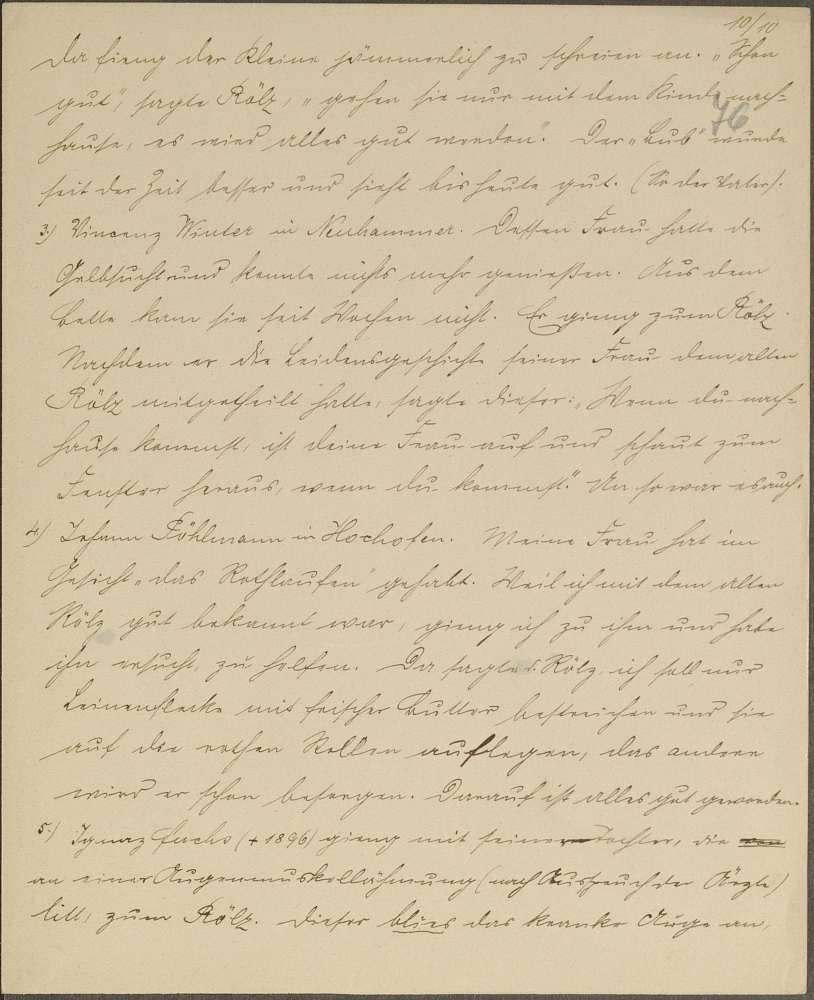 10/10
Da fieng der Kleine jämmerlich zu schreien an. „Schon
gut“, sagte Rölz, „gehen sie nur mit dem Kinde nach-
76
hause, es wird alles gut werden.“ Der „Bub“ wurde
seit der Zeit besser und sieht bis heute gut. (So der Vater).
3.) Vincenz Winter in Neuhammer. Dessen Frau hatte die
Gelbsucht und konnte nichts mehr genießen. Aus dem
Bette kam sie seit Wochen nicht. Er gieng zum Rölz.
Nachdem er die Leidensgeschichte seiner Frau dem alten
Rölz mitgetheilt hatte, sagte dieser: „Wenn du nach-
hause kommst, ist deine Frau auf und schaut zum
Fenster heraus, wenn du kommst.“ Un so war es auch.
4.) Johann Pöhlmann in Hochofen. Meine Frau hat im
Gesicht „das Rothlaufen“ gehabt. Weil ich mit dem alten
Rölz gut bekannt war, gieng ich zu ihm und habe
ihn ersucht, zu helfen. Da sagte d. Rölz, ich soll nur
Leinenflecke mit frischer Butter bestreichen und sie
auf die rothen Stellen auflegen, das andere
wird er schon besorgen. Darauf ist alles gut geworden.
5.) Ignaz Fuchs († 1896) gieng mit seiner Tochter, die
an einer Augenmuskellähmung (nach Ausspruch der Ärzte)
litt, zum Rölz. Dieser blies das kranke Auge an,